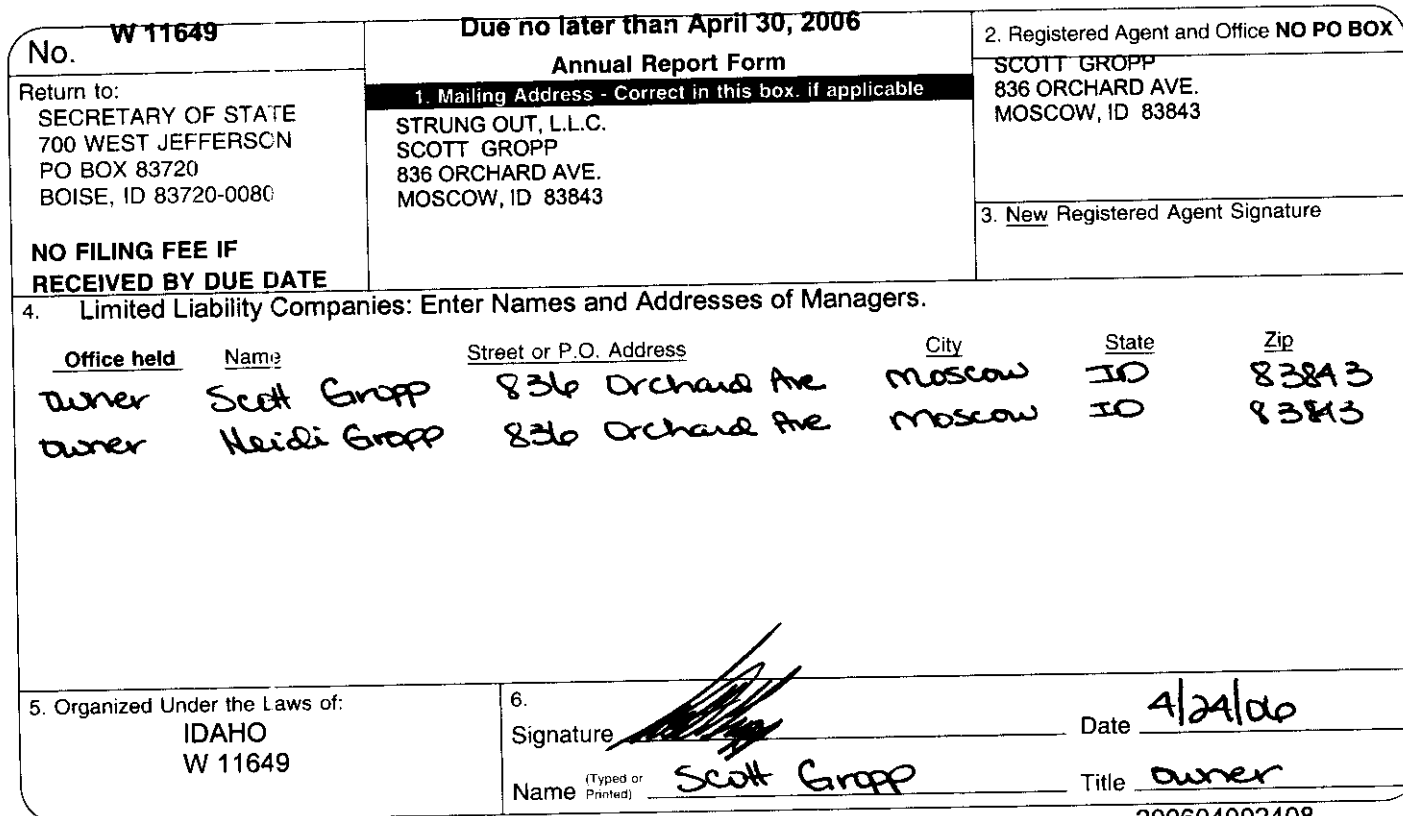 No. W 11649
Return to:
SECRETARY OF STATE
700 WEST JEFFERSON
PO BOX 83720
BOISE, ID 83720-0080
NO FILING FEE IF
RECEIVED BY DUE DATE
Due no later than April 30, 2006
Annual Report Form
1. Mailing Address - Correct in this box. if applicable
STRUNG OUT, L.L.C.
SCOTT GROPP
836 ORCHARD AVE.
MOSCOW, ID 83843
2. Registered Agent and Office NO PO BOX
SCOTT GROPP
836 ORCHARD AVE.
MOSCOW, ID 83843
3. New Registered Agent Signature
4. Limited Liability Companies: Enter Names and Addresses of Managers.
Office held Name Street or P.O. Address City State Zip
owner Scott Gropp 836 Orchard Ave Moscow ID 83843
owner Heidi Gropp 836 Orchard Ave Moscow ID 83843
5. Organized Under the Laws of:
IDAHO
W 11649
6.
Signature Date 4/24/06
Name (Typed or Printed) Scott Gropp Title owner
200604002408